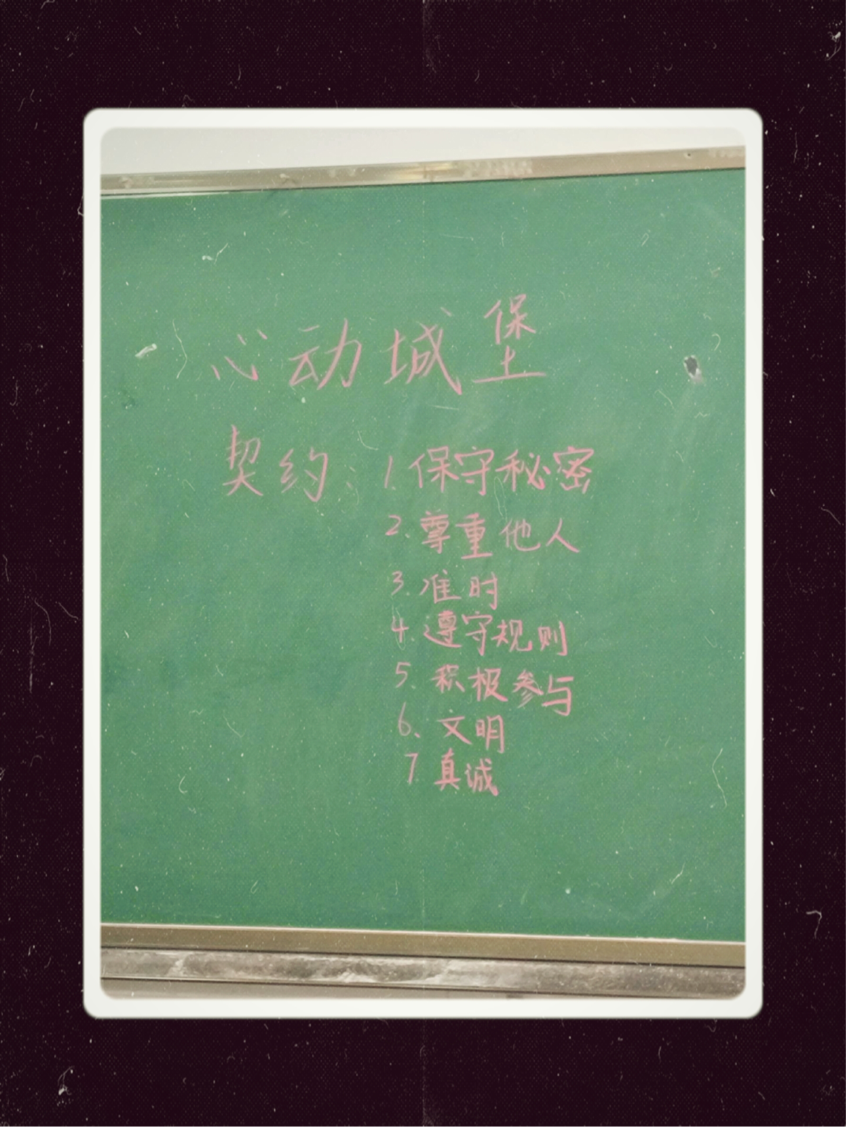 心动城堡
契约: 1. 保守秘密
2. 尊重他人
3. 准时
4. 遵守规则
5. 积极参与
6. 文明
7. 真诚